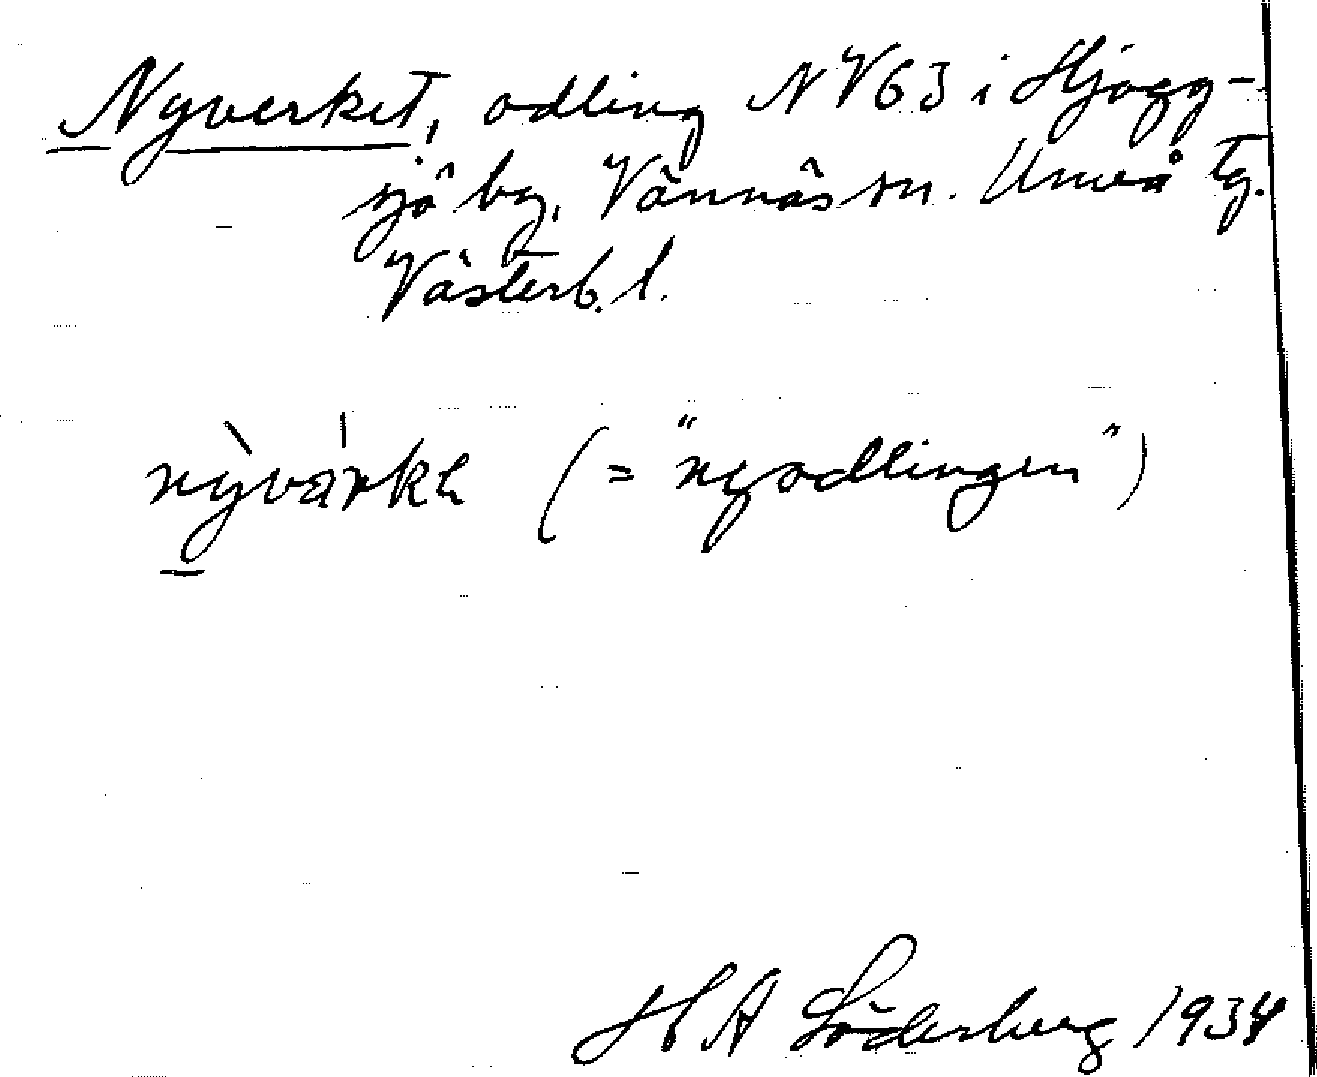 Nyverket, odling NV63 i Hjogg-
sjö by, Vännäs sn. Umeå tg.
Västerb. l.
nỳvárkɘ (= "nyodlingen")
H A Söderberg 1934